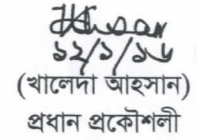 ১২/১/১৬
(খালেদা আহসান)
প্রধান প্রকৌশলী